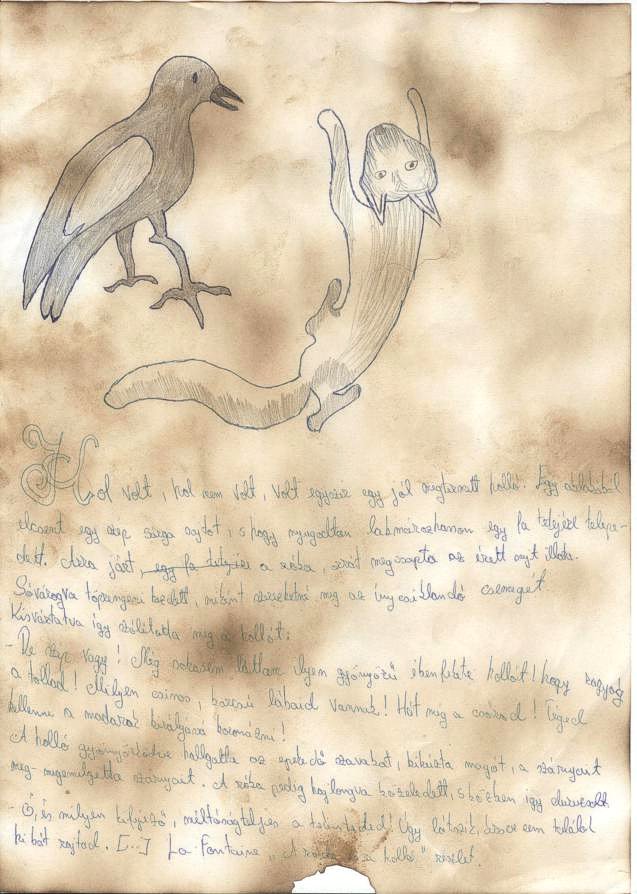 Hol volt, hol nem volt, volt egyszer egy jól megtermett holló. Egy ablakból
elcsent egy szép sárga sajtot, s hogy nyugodtan lakmározhasson egy fa tetején telepe-
dett. Arra járt, egy fa tetején a róka, s orrát megcsapta az érett sajt illata.
Sóvárogva töprengeni kezdett, miként szerezhetné meg az ínycsiklandó csemegét.
Kisvártatva így szólította meg a hollót:
- De szép vagy! Még sohasem láttam ilyen gyönyörű ébenfekete hollót! hogy ragyog
a tollad! Milyen csinos, karcsú lábaid vannak! Hát még a csőröd! Téged
kellene a madarak királyává koronázni!
A holló gyönyörködve hallgatta az epekedő szavakat, kihúzta magát, a szárnyait
meg-megemelgetta szárnyait. A róka pedig hajlongva közeledett, s közben így
- Ó, és milyen kifejező, méltóságteljes a tekinteted! Úgy látszik, senki sem találhat
hibát rajtad. [...] La Fontaine „A róka és a holló" részlet.